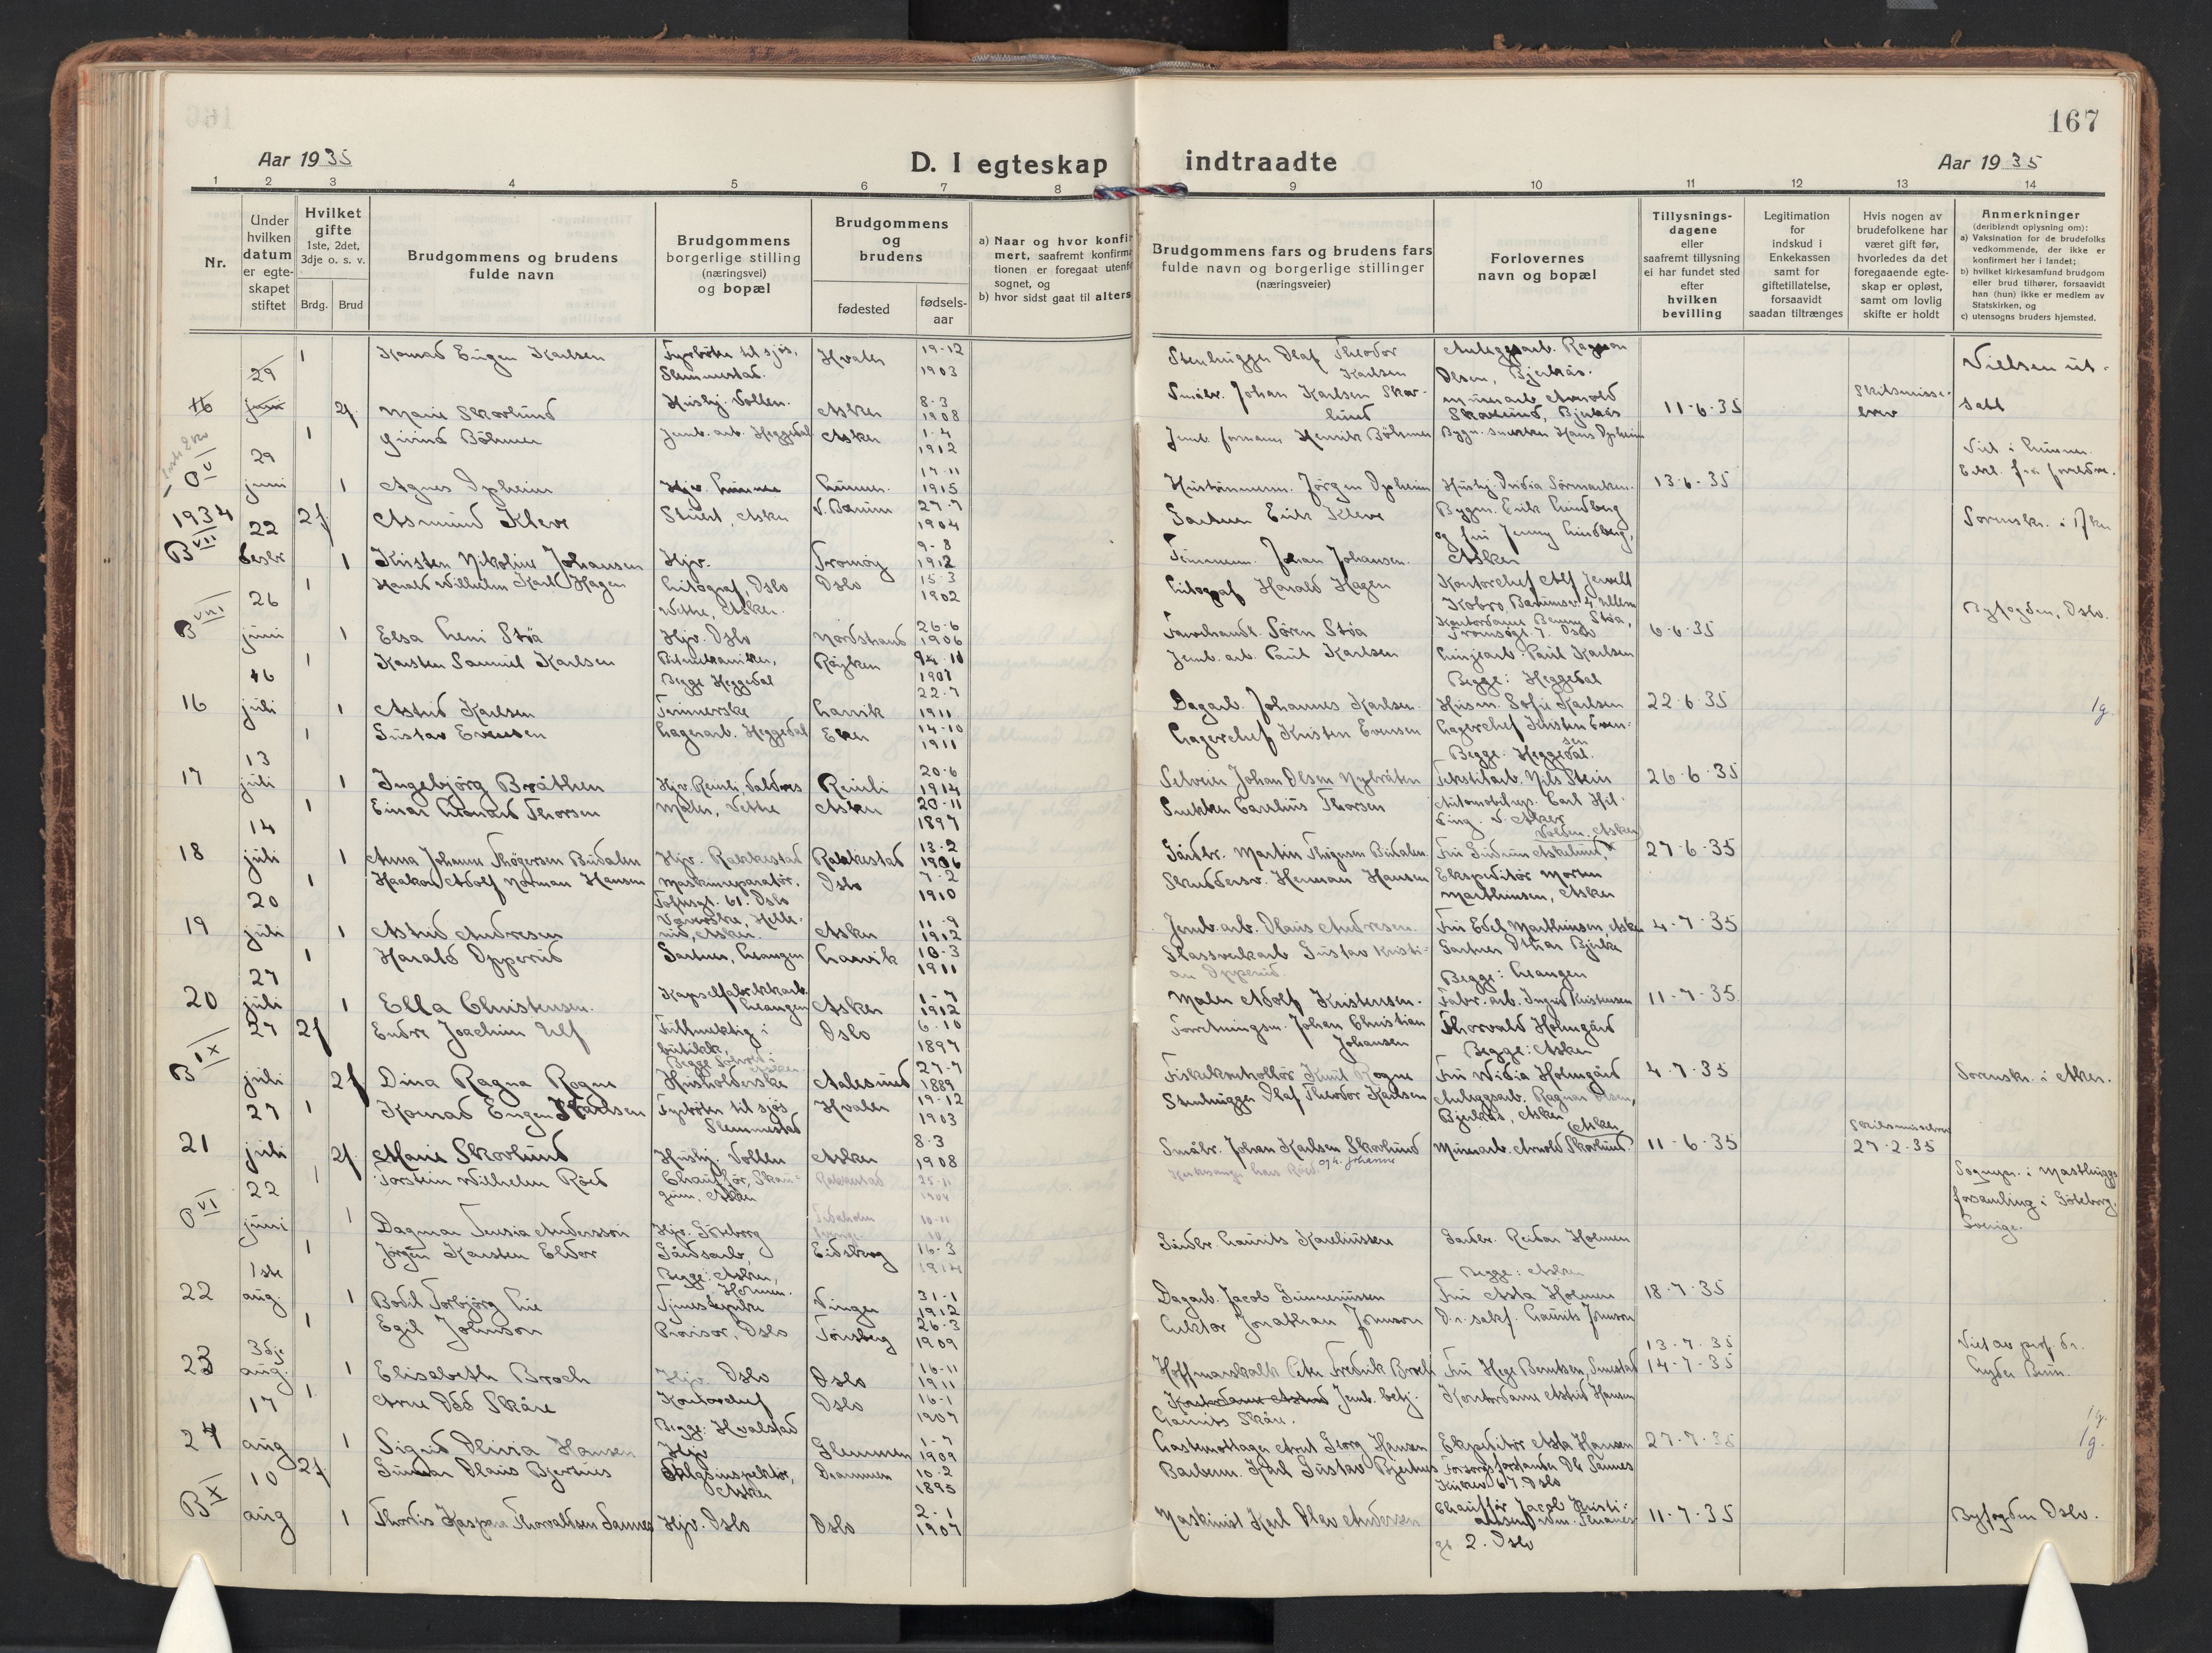 167
Aar 1935
D. I egteskap indtraadte
Aar 1935
1 2 3 4 5 6 7 8 9 10 11 12 13 14
Nr.
Under hvilken datum er egteskapet stiftet
Hvilket gifte
1ste, 2det, 3dje o. s. v.
Brdg. Brud
Brudgommens og brudens fulde navn
Brudgommens borgerlige stilling (næringsvei) og bopæl
Brudgommens og brudens
fødested
fødsels-aar
a) Naar og hvor konfir
mert, saafremt konfirma
tionen er foregaaet utenfo
sognet, og
b) hvor sidst gaat til alters
Brudgommens fars og brudens fars
fulde navn og borgerlige stillinger
(næringsveier)
Forlovernes
navn og bopæl
Tillysnings-
dagene
eller
saafremt tillysning
ei har fundet sted
efter
hvilken
bevilling
Legitimation
for
indskud i
Enkekassen
samt for
giftetillatelse,
forsaavidt
saadan tiltrænges
Hvis nogen av
brudefolkene har
været gift før,
hvorledes da det
foregaaende egte-
skap er opløst,
samt om lovlig
skifte er holdt
Anmerkninger
(deriblandt oplysning om):
a) Vaksination for de brudefolks
vedkommende, der ikke er
konfirmert her i landet;
b) hvilket kirkesamfund brudgom
eller brud tilhører, forsaavidt
han (hun) ikke er medlem av
Statskirken, og
c) utensogns bruders hjemsted.
29 juni 1 Konrad Eugen Karlsen Fyrbøter til sjøs, Slemmestad. Hvaler 19-12 1903 Stenhugger Olaf Theodor Karlsen Anleggsarb. Ragnar Olsen, Bjerkås. Vielsen ut-
16 2g Marie Skovlund Husbj. Vollen. Asker 8-3 1908 Småbr. Johan Karlsen Skovlund Minearb. Arnold Skovlund, Bjerkås 11-6-35 Skilsmisse-brev satt
O V 29 juni 1 Eivind Böhmer Jernb. arb. Heggedal Asker 1-4 1912 Jernb. formann Henrik Böhmer Bygn. snekker Hans Opheim
1 Agnes Opheim Hjv. Lunner. 17-11 1915 Hustømmerm. Jörgen Opheim 13-6-35
1934 22 2g Asmund Kleve Stuert, Asker V. Bærum 27-7 1904 Gartner Erik Kleve Byggm. Erik Lindberg og fru Jenny Lindberg, Sorenskr. i Asker
B VII desbr 1 Kirsten Nikoline Johansen Hjv. Tromøy 9-8 1912 Johan Johansen. Asker
26 1 Harald Wilhelm Karl Hagen Litograf, Oslo Oslo 15-3 1902 Litograf Harald Hagen Kontorchef Alf Jervell
B VIII juni 1 Elsa Leni Støa Hjv. Oslo Nordstrand 26-6 1906 Søren Støa Kontordame Benny Støa, Tromsøgt. 7. Oslo 6-6-35 Byfogden, Oslo.
1 Karsten Samuel Karlsen Bilmekaniker, Begge Heggedal Røyken 1907 Jernb. arb. Paul Karlsen Linjearb. Paul Karlsen Begge: Heggedal
16 juli 1 Astrid Karlsen Larvik 22-7 1911 Dagarb. Johannes Karlsen. Husm. Sofie Karlsen 22-6-35 1g.
13 1 Gustav Evensen Lagerarb. Heggedal Eker 14-10 1911 Lagerchef Kristen Evensen Lagerchef Kristen Evensen Begge: Heggedal.
17 juli 1 Ingebjörg Bråthen Hjv. Reinli, Valdres Reinli 20-6 1914 Selveier Johan Olsen Nybråten Tekstilarb. Nils Stein 26-6-35
14 1 Einar Leonard Thorsen Maler, Vettre Asker 20-11 1897 Snekker Carelius Thorsen Automobilrep. Carl
18 juli 1 Anna Johanne Thögersen Budalen Hjv. Rakkestad Rakkestad 13-2 1906 Gårdbr. Martin Thögersen Budalen Fru Gudrun Askelund, Volden, Asker 27-6-35
20 1 Haakon Adolf Norman Hansen Maskinreparatör, Toftesgt. 61. Oslo Oslo 7-2 1910 Skreddersv. Herman Hansen Ekspeditör Morten Marthinsen, Asker
19 juli 1 Astrid Andresen Asker 11-9 1912 Jernb. arb. Olaus Andresen. Fru Edel Marthinsen, Asker 4-7-35
27 1 Harald Opperud Gartner, Leangen Larvik 10-3 1911 Glassverkarb Gustav Kristian Opperud. Gartner Othar Bjerke Begge: Leangen
20 juli 1 Ella Christensen. Kapselfabrikkarb. Leangen Asker 1-7 1912 Maler Adolf Kristensen. Fabr. arb. Ingrid Kristensen 11-7-35
27 2g Endre Joachim Ulf Fullmektig i butikk, Oslo 6-10 1897 Forretningsm. Johan Christian Johansen Thorvald Holmgård Begge: Asker
B IX juli 2g Dina Ragna Rogne Husholderske Aalesund 27-7 1889 Fiskekontrollör Knut Rogne Fru Vidia Holmgård 4-7-35 Sorenskr. i Asker.
27 1 Konrad Eugen Karlsen Fyrbøter til sjøs Slemmestad Hvaler 19-12 1903 Stenhugger Olaf Theodor Karlsen Anleggsarb. Ragnar Olsen, Bjerkås, Asker
21 juli 2g Marie Skovlund Husbj. Vollen Asker 8-3 1908 Småbr. Johan Karlsen Skovlund Minearb. Arnold Skovlund. Asker 11-6-35 27-2-35
22 1 Torstein Wilhelm Röed Chaufför, Skaugum, Asker Rakkestad 25-11 1904 Sogner. i Masthuggs forsamling i Göteborg, Sverige.
O VI juni 1 Dagmar Teresia Andersson Hjv. Göteborg 10-11 10
1ste 1 Jörgen Karsten Eldor Gårdsarb. Begge: Asker, Holmen. Eidsberg 16-3 1914 Gårdbr. Laurits Gårdbr. Reidar Holmen Begge: Asker
22 aug. 1 Bodil Torbjörg Lie Vinger 31-1 1912 Dagarb. Jacob Gunneriussen Fru Asta Holmen 18-7-35
3dje 1 Egil Johnson Provisor, Oslo Tönsberg 26-3 1909 Lektor Jonathan Johnson O.r. sakf. Laurits Johnson 13-7-35
23 aug. 1 Elisabeth Broch Hjv. Oslo Oslo 16-11 1911 Hoffmarskalk Peter Fredrik Broch Fru Hege Berntsen, Smestad 14-7-35 Viet av prof. dr. Lyder Brun.
17 1 Arne Odd Skåre Kontorchef Begge: Hvalstad Oslo 16-1 1907 Jernb. betj. Laurits Skåre. Kontordame Astrid Hansen
24 aug 1 Sigrid Olivia Hansen Hjv Glemmen 1-7 1909 Georg Hansen Ekspeditör Asta Hansen 27-7-35 1g.
10 2g Gunnar Olaus Bjertnes Salgsinspektör, Asker Drammen 10-2 1895 Barberm. Karl Gustav Bjertnes
B X aug 1 Thordis Kaspara Thorvaldsen Sannes Hjv. Oslo Oslo 2-1 1907 Maskinist Karl Olav Andersen Chauffør Jacob Kristiansen 2. Oslo 11-7-35 Byfogden Oslo.